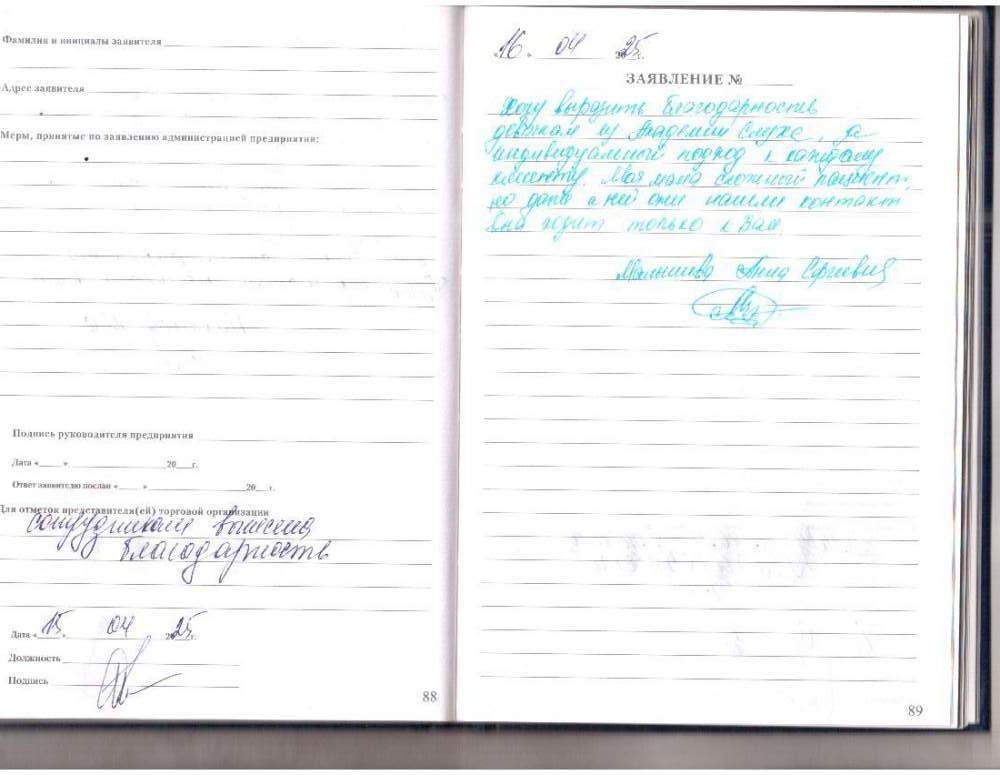 Фамилия и инициалы заявителя
Адрес заявителя
Меры, принятые по заявлению администрацией предприятия:
Подпись руководителя предприятия
Дата «___» ______ 20__г.
Ответ заявителю послан «___» ______ 20__г.
Для отметок представителя(ей) торговой организации
сотрудникам вынесена
благодарность
Дата «15» 04 2025г.
Должность
Подпись
88
«16» 04 2025г.
ЗАЯВЛЕНИЕ № ____
Хочу выразить благодарность
девочкам из Академии Слуха, за
индивидуальный подход к каждому
клиенту. Моя мама сложный пациент,
но даже с ней они нашли контакт
Она ходит только к Вам.
Малышева Анна
89